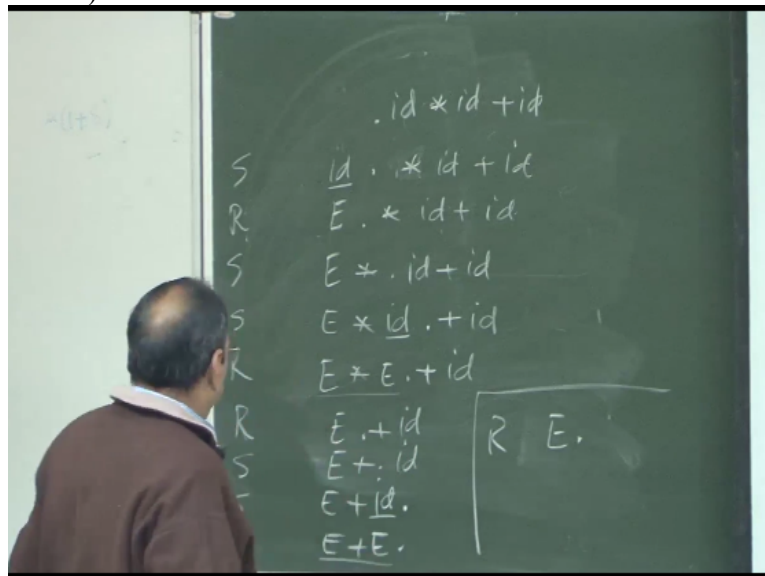 . id * id + id
S id . * id + id
R E . * id + id
S E * . id + id
S E * id . + id
R E * E . + id
R E . + id
S E + . id
E + id .
E + E .
R E .